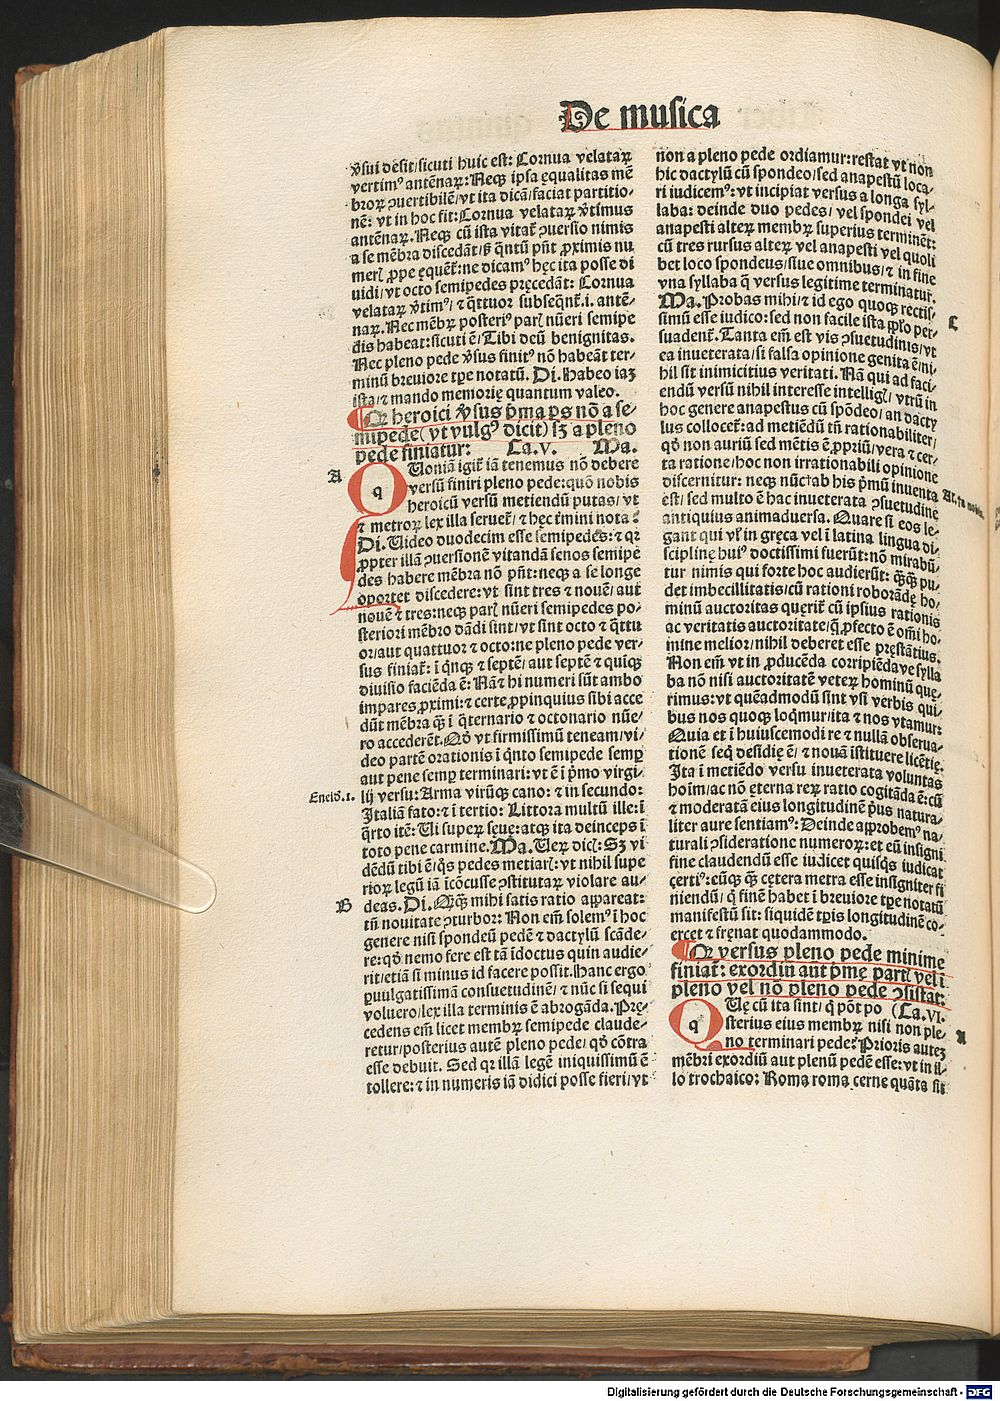 De musica
v̾sui desit/sicuti huic est: Cornua velataꝝ
vertimꝰ antēnaꝝ: Neqꝫ ipsa ęqualitas mē
broꝝ ꝯuertibilē/vt ita dicā/faciat partitio-
nē: vt in hoc fit: Cornua velataꝝ v̾timus
antēnaꝝ. Neqꝫ cū ista vitat̃ ꝯuersio nimis
a se mēbra discedāt/ꝫ q̄ntū pn̄t ꝓximis nu
meris ꝓpe ęquent̃: ne dicamꝰ hęc ita posse di
uidi/vt octo semipedes pręcedāt: Cornua
velataꝝ v̾timꝰ/⁊ q̄ttuor subseqn̄t.i. antē-
naꝝ. Nec mēbꝝ posteriꝰ paris nūeri semipe
dis habeat: sicuti ē/Tibi deū benignitas.
Nec pleno pede v̾sus finitꝰ nō habeāt ter-
minū breuiore tp̄e notatū. Di. Habeo iaꝫ
ista/⁊ mando memorię quantum valeo.
Qꝛ heroici v̾sus p̄ma ps nō a se-
mipede (vt vulgꝰ dicit) sꝫ a pleno
pede finiatur: Ca.V. Ma.
A
QUoniā igit̃ iā tenemus nō debere
q
versū finiri pleno pede: quō nobis
heroicū versū metiendū putas/vt
⁊ metroꝝ lex illa seruet̃/⁊ hęc t̃mini nota?
Di. Uideo duodecim esse semipedes: ⁊ qꝛ
ꝓpter illā ꝯuersionē vitandā senos semipe
des habere mēbra nō pn̄t: neqꝫ a se longe
oportet discedere: vt sint tres ⁊ nouē/aut
nouē ⁊ tres: neqꝫ paris nūeri semipedes po-
steriori mēbro dādi sint/vt sint octo ⁊ q̄ttu
or/aut quattuor ⁊ octo: ne pleno pede ver-
sus finiat̃: i q̄nqꝫ ⁊ septē/aut septē ⁊ quiqꝫ
diuisio faciēda ē: Nā ⁊ hi numeri sūt ambo
impares ꝓximi: ⁊ certe ꝓpinquius sibi acce
dūt mēbra qꝫ i q̄ternario ⁊ octonario nūe/
ro accederēt. Qō vt firmissimū teneam/vi/
deo partē orationis i q̄nto semipede semꝑ
aut pene semꝑ terminari: vt ē i p̄mo virgi/
Eneid.1.
lij versu: Arma virūqꝫ cano: ⁊ in secundo:
Italiā fato: ⁊ i tertio: Littora multū ille: i
q̄rto itē: Ui superꝫ sęuę: atqꝫ ita deinceps i
toto pene carmine. Ma. Ueꝝ dicis: Sꝫ vi
dēdū tibi ē/q̄s pedes metiaris: vt nihil supe
rioꝝ legū iā icōcusse ꝯstitutaꝝ violare au-
B
deas. Di. Qq̄ꝫ mihi satis ratio appareat:
tn̄ nouitate ꝯturbor: Non em̄ solemꝰ i hoc
genere nisi spondeū pedē ⁊ dactylū scāde/
re: qō nemo fere est tā idoctus quin audie-
rit/etiā si minus id facere possit. Hanc ergo
ꝑuulgatissimā consuetudinē/⁊ nūc si sequi
voluero/lex illa terminis ē abrogāda. Prę-
cedens em̄ licet membꝝ semipede claude-
retur/posterius autē pleno pede/qō cōtra
esse debuit. Sed qꝛ illā legē iniquissimū ē
tollere: ⁊ in numeris iā didici posse fieri/vt
non a pleno pede ordiamur: restat vt non
hic dactylū cū spondeo/sed anapestū loca-
ri iudicemꝰ: vt incipiat versus a longa syl-
laba: deinde duo pedes/vel spondei vel
anapesti alteꝝ membꝝ superius terminēt:
cū tres rursus alteꝝ vel anapesti vel quoli
bet loco spondeus/siue omnibus/⁊ in fine
vna syllaba q̄ versus legitime terminatur.
Ma. Probas mihi/⁊ id ego quoqꝫ rectis/
C
simū esse iudico: sed non facile ista pp̄lo per-
suadent̃. Tanta em̄ est vis ꝯsuetudinis/vt
ea inueterata/si falsa opinione genita ē/ni/
hil sit inimicitius veritati. Nā qui ad faci-
endū versū nihil interesse intelligis/vtrū in
hoc genere anapestus cū spōdeo/an dacty
lus collocet̃: ad metiēdū tn̄ rationabiliter/
qō non auriū sed mētis ē ꝓpriū/vera ⁊ cer/
ta ratione/hoc non irrationabili opinione
discernitur: neqꝫ nūc ab his p̄mū inuenta
At. tu nobis.
est/sed multo ē hac inueterata ꝯsuetudine
antiquius animaduersa. Quare si eos le-
gant qui vl̃ in gręca vel i latina lingua di-
sciplinę huiꝰ doctissimi fuerūt: nō mirabū/
tur nimis qui forte hoc audierūt: q̄q̄ꝫ pu-
det imbecillitatis/cū rationi roborādę ho/
minū auctoritas querit̃ cū ipsius rationis
ac veritatis auctoritate/q̄ ꝓfecto ē om̄i ho-
mine melior/nihil deberet esse pręstātius.
Non em̄ vt in ꝓducēda corripiēdave sylla
ba nō nisi auctoritatē veteꝝ hominū quę-
rimus: vt quēadmodū sint vsi verbis qui-
bus nos quoqꝫ loq̄mur/ita ⁊ nos vtamur:
Quia et i huiuscemodi re ⁊ nullā obserua-
tionē seq̄ desidię ē/⁊ nouā istituere licētię.
Ita i metiēdo versu inueterata voluntas
hoīm/ac nō ęterna reꝝ ratio cogitāda ē: cū
⁊ moderatā eius longitudinē p̄us natura-
liter aure sentiamꝰ: Deinde approbemꝰ na-
turali ꝯsideratione numeroꝝ: et eū insigni
fine claudendū esse iudicet quisq̄s iudicat
çertiꝰ: eūqꝫ q̄ cętera metra esse insigniter fi
niendū/q̄ finē habet i breuiore tp̄e notatū
manifestū sit: siquidē tp̄is longitudinē co-
ercet ⁊ fręnat quodammodo.
Qꝛ versus pleno pede minime
finiat̃: exordiū aut p̄mę partis vel i
pleno vel nō pleno pede ꝯsistat:
QUę cū ita sint/q̄ pōt po (Ca.VI.
q
sterius eius membꝝ nisi non ple-
A
no terminari pede? Prioris auteꝫ
mēbri exordiū aut plenū pedē esse: vt in il-
lo trochaico: Roma roma cerne quāta sit
Digitalisierung gefördert durch die Deutsche Forschungsgemeinschaft - DFG